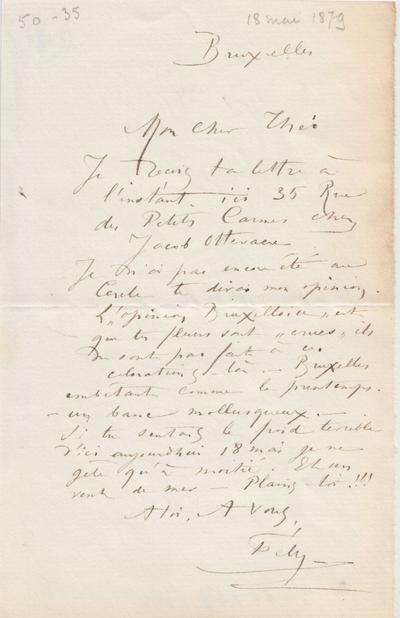 50 - 35
18 mai 1879
Bruxelles
Mon cher Théo
Je reçois ta lettre à
l'instant. ici 35 Rue
des Petits Carmes chez
Jacob Ottevaere
Je n'ai pas encore été au
Cercle te dirai mon opinion.
L'"opinion Bruxelloise" est
que tes fleurs sont "crues", ils
ne sont pas faits à ces
colorations là. - Bruxelles
embêtant comme le printemps.
- un banc mollusqueux. -
Si tu sentais le froid terrible
d'ici aujourdhui 18 mai je ne
gèle qu'à moitié. Et un
vent de mer - Plains-toi !!!
A toi, A vous,
Fély